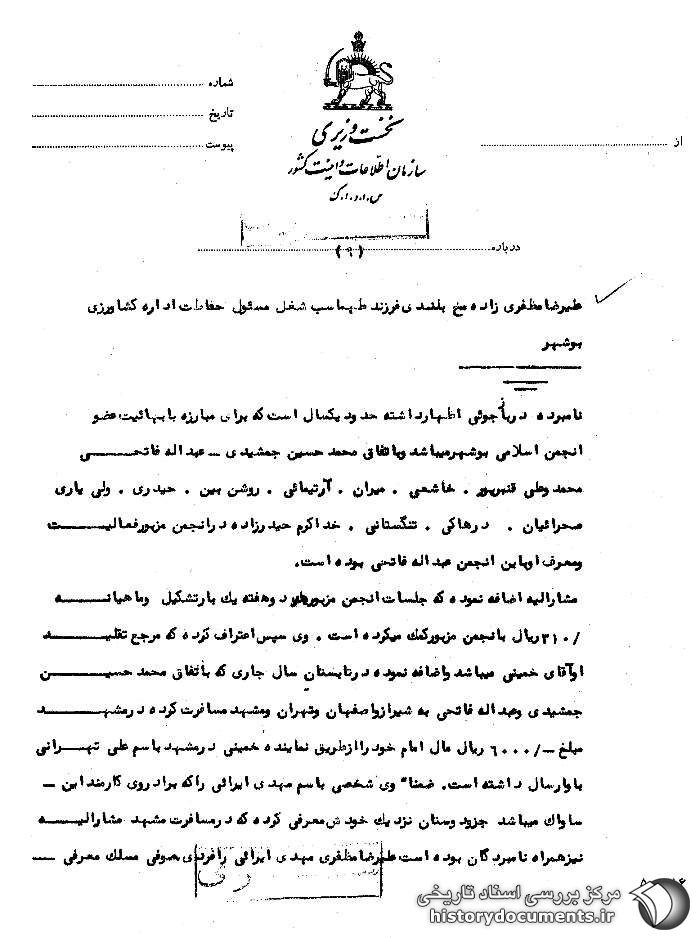 شماره
تاریخ
پیوست
از
نخست وزیری
سازمان اطلاعات و امنیت کشور
س.ا.و.ا.ک
درباره
(۹)
علیرضا مظفری زاده مخ بلندی فرزند طهماسب شغل مسئول حفاظت اداره کشاورزی
بوشهر
نامبرده در بازجوئی اظهار داشته حدود یکسال است که برای مبارزه با بهائیت عضو
انجمن اسلامی بوشهر میباشد و با تفاق محمد حسین جمشیدی ـ عبداله فاتحی
محمد وعلی قنبرپور . خاشعی . میران . آرتیمائی . روشن بین . حیدری . ولی یاری
صحرائیان . درهاکی . تنگستانی . خداکرم حیدرزاده در انجمن مزبور فعالیت
ومعرف او باین انجمن عبداله فاتحی بوده است.
مشارالیه اضافه نموده که جلسات انجمن مزبور هر دو هفته یك بار تشکیل وماهیانه
/۲۱۰ ریال با نجمن مزبور کمك میکرده است . وی سپس اعتراف کرده که مرجع تقلید
او آقای خمینی میباشد واضافه نموده در تابستان سال جاری که با تفاق محمد حسین
جمشیدی وعبداله فاتحی به شیراز واصفهان وتهران ومشهد مسافرت کرده در مشهد
مبلغ ـ/۶۰۰۰ ریال مال امام خود را از طریق نماینده خمینی در مشهد باسم علی تهرانی
باو ارسال داشته است. ضمنا" وی شخصی باسم مهدی ایرائی را که برادر وی کارمند این ـ
ساواك میباشد جزو دوستان نزدیك خودش معرفی کرده که در مسافرت مشهد مشارالیه
نیز همراه نامبردگان بوده است علیرضا مظفری مهدی ایرائی را فردی صوفی مسلك معرفی
مرکز بررسی اسناد تاریخی
historydocuments.ir